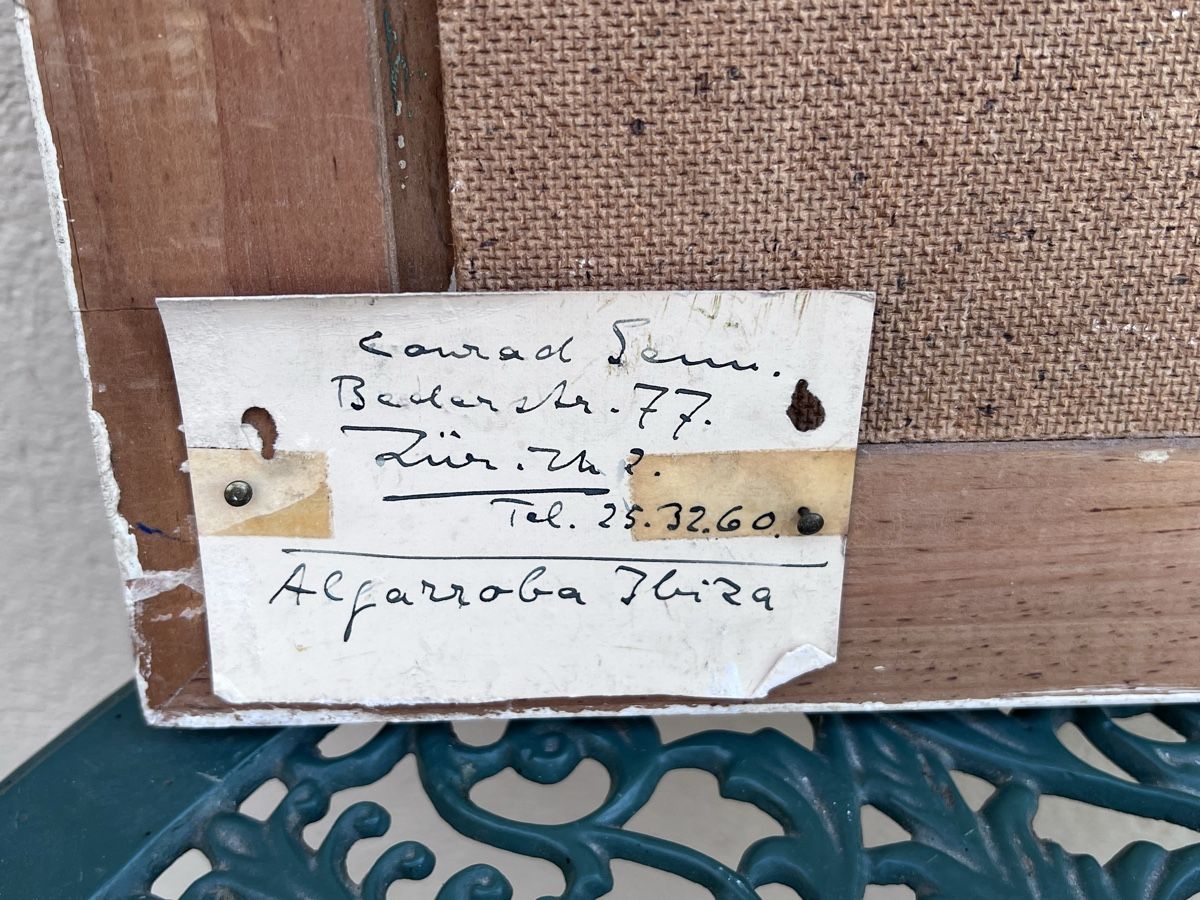 Conrad Senn.
Bederstr. 77.
Zürich 2.
Tel. 25.32.60.
Algarroba Ibiza